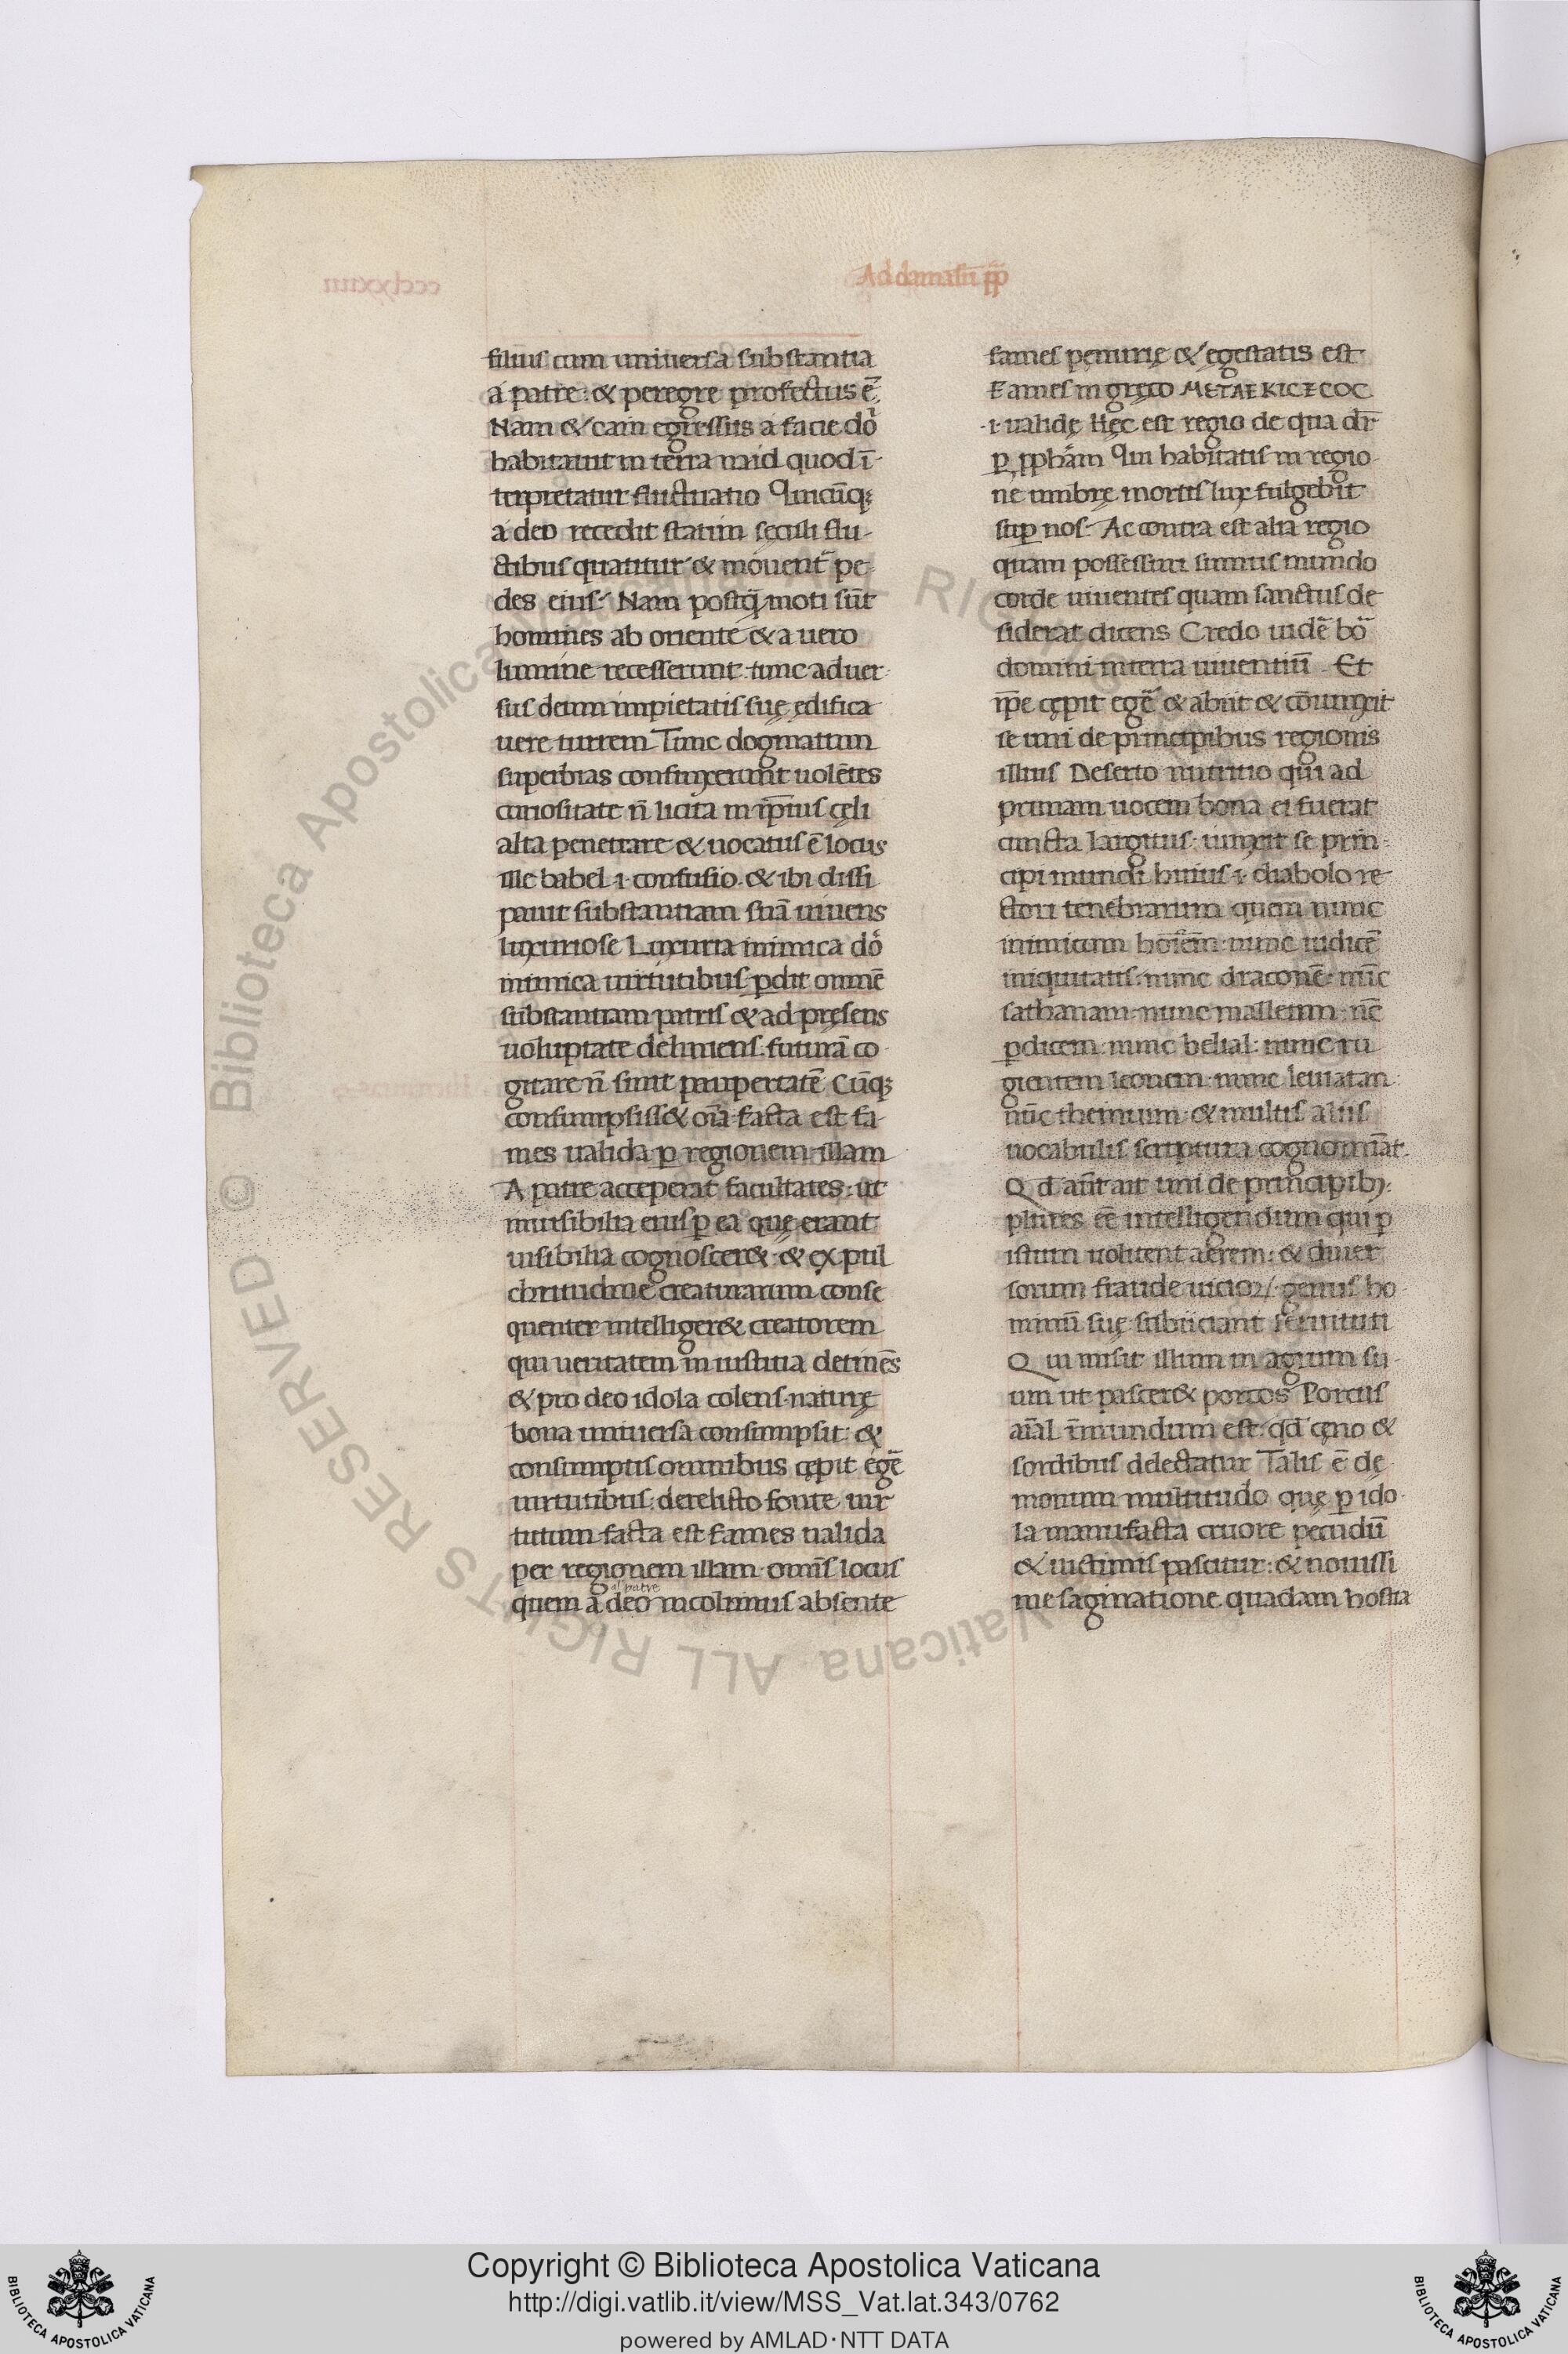 Ad damasū pp̄
filius cum uniuersa substantia
a patre: & peregre profectus ē.
Nam & cain egressus a facie dȯ
habitauit in terra naid quod ī-
terpretatur fluctuatio Quicūq;
a deo recedit statim sęculi flu-
ctibus quatitur & mouent̄ pe-
des eius. Nam postq̄ moti sūt
homines ab oriente & a uero
lumine recesserunt: tunc aduer-
sus deum impietatis suę ędifica
uere turrem Tunc dogmatum
superbias confinxerunt uolētes
curiositate n̄ licita in ip̄ius cęli
alta penetrare & uocatus ē locus
ille babel .i. confusio. & ibi dissi
pauit substantiam suā uiuens
luxuriose Luxuria inimica dȯ
inimica uirtutibus ꝑdit omnē
substantiam patris & ad pręsens
uoluptate deliniens. futurā co-
gitare n̄ sinit paupertatē Cūq;
consumpsiss& oīa facta est fa-
mes ualida ꝑ regionem illam
A patre acceperat facultates: ut
inuisibilia eius ꝑ ea quę erant
uisibilia cognoscer& & ex pul
chritudine creaturarum conse
quenter intelliger& creatorem
qui ueritatem in iustitia detinēs
& pro deo idola colens. naturę
bona uniuersa consumpsit: &
consumptis omnibus cępit egē
uirtutibus: derelicto fonte uir
tutum facta est fames ualida
per regionem illam. omīs locus
al' patre
quem a deo incolimus absente
fames penurię & egestatis est
Fames in gręco ΜΕΤΑΕ
.i. ualidę Hęc est regio de qua dr̄
ꝑ ꝓphām Qui habitatis in regio
ne umbrę mortis lux fulgebit
suꝑ nos. Ac contra est alia regio
quam possessuri sumus mundo
corde uiuentes quam sanctus de
siderat dicens Credo uidē bō
domini in terra uiuentiū. Et
ip̄e cępit egē & abiit & cōiunxit
se uni de principibus regionis
illius Deserto nutritio qui ad
primam uocem bona ei fuerat
cuncta largitus: iunxit se prin-
cipi mundi huius .i. diabolo re-
ctori tenebrarum quem nunc
inimicum hoīēm: nunc iudicē
iniquitatis: nunc draconē: nūc
sathanam: nunc malleum: nc̄
ꝑdicem: nunc belial: nunc ru
gientem leonem: nunc leuiatan:
nūc theinium: & multis aliis
uocabulis scriptura cognomināt.
Qd aūt ait uni de principib;:
plures eē intelligendum qui ꝑ
istum uolitent aerem: & diuer
sorum fraude uicioꝝ genus ho
minū suę subiiciant seruituti
Qui misit illum in agrum su-
um ut pascer& porcos Porcus
aīal īmundum est: qd cęno &
sordibus delectatur Talis ē de
monum multitudo quę ꝑ ido-
la manufacta cruore pecudū
& uictimis pascitur: & nouissi
me saginatione quadam hostia
Copyright © Biblioteca Apostolica Vaticana
http://digi.vatlib.it/view/MSS_Vat.lat.343/0762
powered by AMLAD·NTT DATA
© Biblioteca Apostolica Vaticana ALL RIGHTS RESERVED
BIBLIOTECA APOSTOLICA VATICANA
BIBLIOTECA APOSTOLICA VATICANA